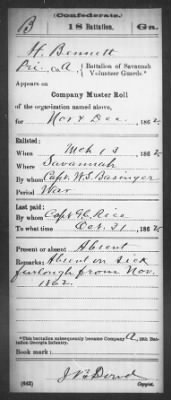 (Confederate.)
B 18 Battalion. Ga.
H. Bennett
Pri, Co. A, Battalion of Savannah Volunteer Guards.*
Appears on
Company Muster Roll
of the organization named above,
for Nov & Dec, 1862.
Enlisted:
When Mch 13, 1862
Where Savannah
By whom Capt. W.S. Basinger
Period War
Last paid:
By whom Capt. G.C. Rice
To what time Oct. 31, 1862
Present or absent Absent
Remarks: Absent on sick
furlough from Nov.
1862.
*This battalion subsequently became Company A, 18th Battalion Georgia Infantry.
Book mark:
(642)
Copyist.